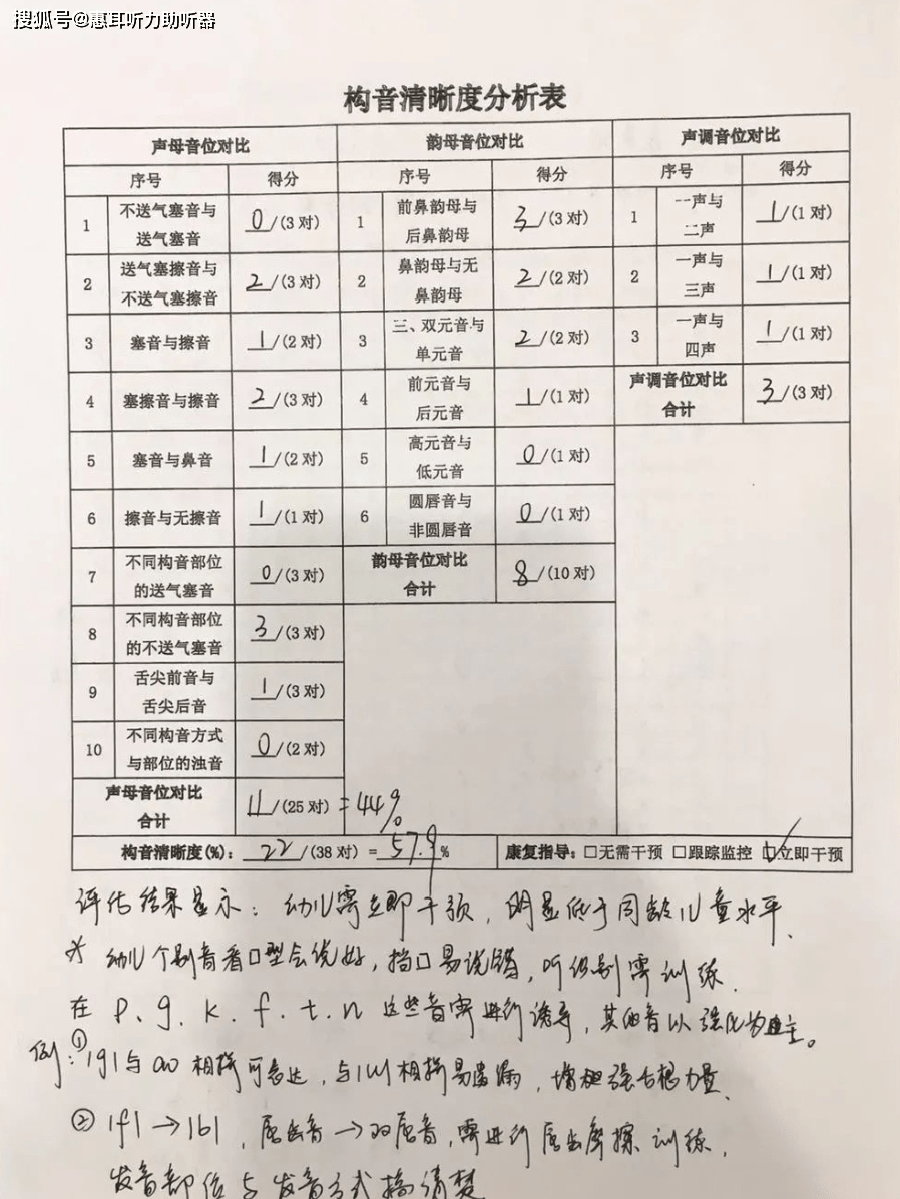 搜狐号@惠耳听力助听器
构音清晰度分析表
声母音位对比 韵母音位对比 声调音位对比
序号 得分 序号 得分 序号 得分
1 不送气塞音与送气塞音 0/(3 对) 1 前鼻韵母与后鼻韵母 3/(3 对) 1 一声与二声 1/(1 对)
2 送气塞擦音与不送气塞擦音 2/(3 对) 2 鼻韵母与无鼻韵母 2/(2 对) 2 一声与三声 1/(1 对)
3 塞音与擦音 1/(2 对) 3 三、双元音与单元音 2/(2 对) 3 一声与四声 1/(1 对)
4 塞擦音与擦音 2/(3 对) 4 前元音与后元音 1/(1 对) 声调音位对比合计 3/(3 对)
5 塞音与鼻音 1/(2 对) 5 高元音与低元音 0/(1 对)
6 擦音与无擦音 1/(1 对) 6 圆唇音与非圆唇音 0/(1 对)
7 不同构音部位的送气塞音 0/(3 对) 韵母音位对比合计 8/(10 对)
8 不同构音部位的不送气塞音 3/(3 对)
9 舌尖前音与舌尖后音 1/(3 对)
10 不同构音方式与部位的浊音 0/(2 对)
声母音位对比合计 11/(25 对) = 44%
构音清晰度(%): 22/(38 对) = 57.9% 康复指导: □无需干预 □跟踪监控 ☑立即干预
评估结果显示: 幼儿需立即干预, 明显低于同龄儿童水平.
* 幼儿个别音看口型会说好, 挡口易说错, 听识别需训练.
在 p、g、k、f、t、n 这些音需进行诱导, 其他音以强化为主。
例: ① |g|与ao 相拼可表达, 与|u|相拼易遗漏, 增加强舌根力量.
② |f|→|b|, 唇齿音→双唇音, 需进行唇齿摩擦训练,
发音部位与发音方式搞清楚